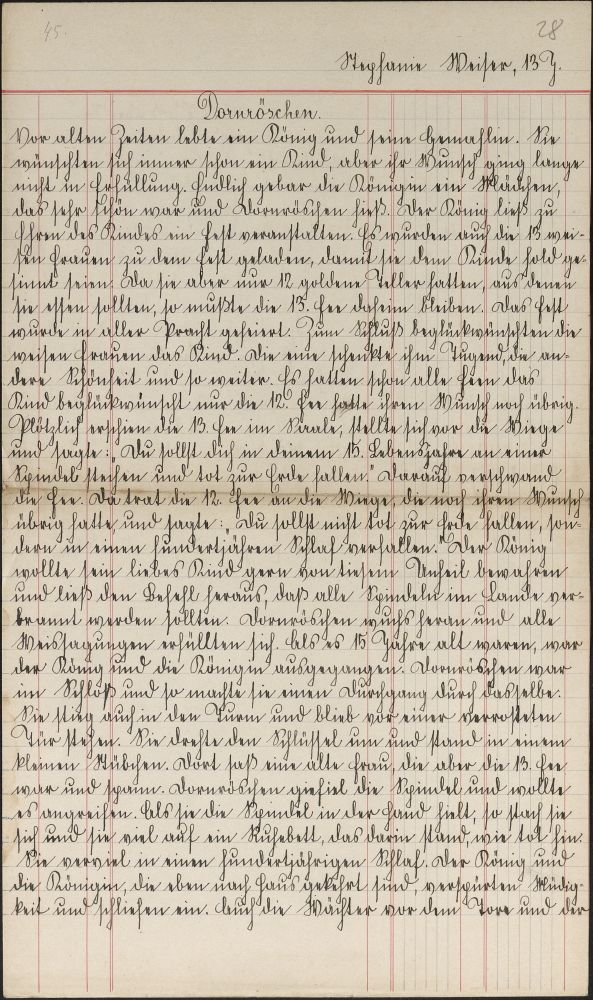 45.
28
Stephanie Weiser, 13 J.
Dornröschen.
Vor alten Zeiten lebte ein König und seine Gemahlin. Sie
wünschten sich immer schon ein Kind, aber ihr Wunsch ging lange
nicht in Erfüllung. Endlich gebar die Königin ein Mädchen,
das sehr schön war und Dornröschen hieß. Der König ließ zu
Ehren des Kindes ein Fest veranstalten. Es wurden auch die 13 wei-
sen Frauen zu dem Fest geladen, damit sie dem Kinde hold ge-
sinnt seien. Da sie aber nur 12 goldene Teller hatten, aus denen
sie essen sollten, so mußte die 13. Fee daheim bleiben. Das Fest
wurde in aller Pracht gefeiert. Zum Schluß beglückwünschten die
weisen Frauen das Kind. Die eine schenkte ihm Tugend, die an-
dere Schönheit und so weiter. Es hatten schon alle Feen das
Kind beglückwünscht nur die 12. Fee hatte ihren Wunsch noch übrig.
Plötzlich erschien die 13. Fee im Saale, stellte sich vor die Wiege
und sagte: „Du sollst dich in deinem 15. Lebensjahre an einer
Spindel stechen und tot zur Erde fallen." Darauf verschwand
die Fee. Da trat die 12. Fee an die Wiege, die noch ihren Wunsch
übrig hatte, und sagte: „Du sollst nicht tot zur Erde fallen, son-
dern in einen hundertjähren Schlaf verfallen." Der König
wollte sein liebes Kind gern von diesem Unheil bewahren
und ließ den Befehl heraus, daß alle Spindeln im Lande ver-
brannt werden sollten. Dornröschen wuchs heran und alle
Weissagungen erfüllten sich. Als es 15 Jahre alt waren, war
der König und die Königin ausgegangen. Dornröschen war
im Schloß und so machte sie einen Durchgang durch dasselbe.
Sie stieg auch in den Turm und blieb vor einer verrosteten
Tür stehen. Sie drehte den Schlüssel um und stand in einem
kleinen Stübchen. Dort saß eine alte Frau, die aber die 13. Fee
war und spann. Dornröschen gefiel die Spindel und wollte
es angreifen. Als sie die Spindel in der Hand hielt, so stach sie
sich und sie viel auf ein Ruhebett, das darin stand, wie tot hin.
Sie verviel in einen hundertjährigen Schlaf. Der König und
die Königin, die eben nach Haus gekehrt sind, verspürten Müdig-
keit und schliefen ein. Auch die Wächter vor dem Tore und der